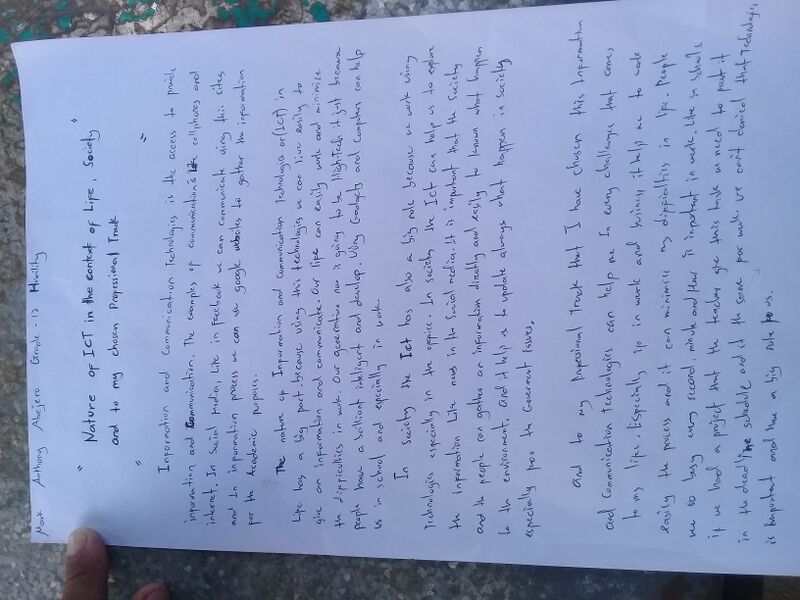 Mark Anthony Abejero Grade - 12 Humility
" Nature of ICT in the context of Life, Society"
and to my chosen Professional Track
" "
Information and Communication Technologies is the access to provide
information and Communication. The examples of communication is like cellphones and
internet. In Social Media, Like in Facebook we can communicate using this sites
and In information process we can use google websites to gather the information
for the Academic purposes.
The nature of Information and Communication Technologies or (ICT) in
Life has a big part because using this technologies we can live easily to
give an information and communicate. Our life can easily work and minimize
the difficulties in work. Our generation now is going to be HighTech it just because
people have a brilliant inteligent and develop. Using Gadgets and Computers can help
us in school and especially in work.
In Society the Ict has also a big role because we work using
Technologies especially in the office. In society the Ict can help us to explore
the information Like news in the Social media. It is important that the Society
and the people can gather an information directly and easily to known what happen
to the environment, and it help us to update always what happen in society
especially from the Goverment issues.
And to my Professional Track that I have chosen this Information
and Communication Technologies can help me In every challenges that comes
to my life. Especially if in work and business, it help me to work
easily the process and it can minimize my difficulties in life. People
are so busy every second, minute and Hour is important in work. Like in schools
if we had a project that the teacher give this task we need to past it
in the deadline schedule and it the same for work. We can't denied that Technologies
is important and have a big role to us.